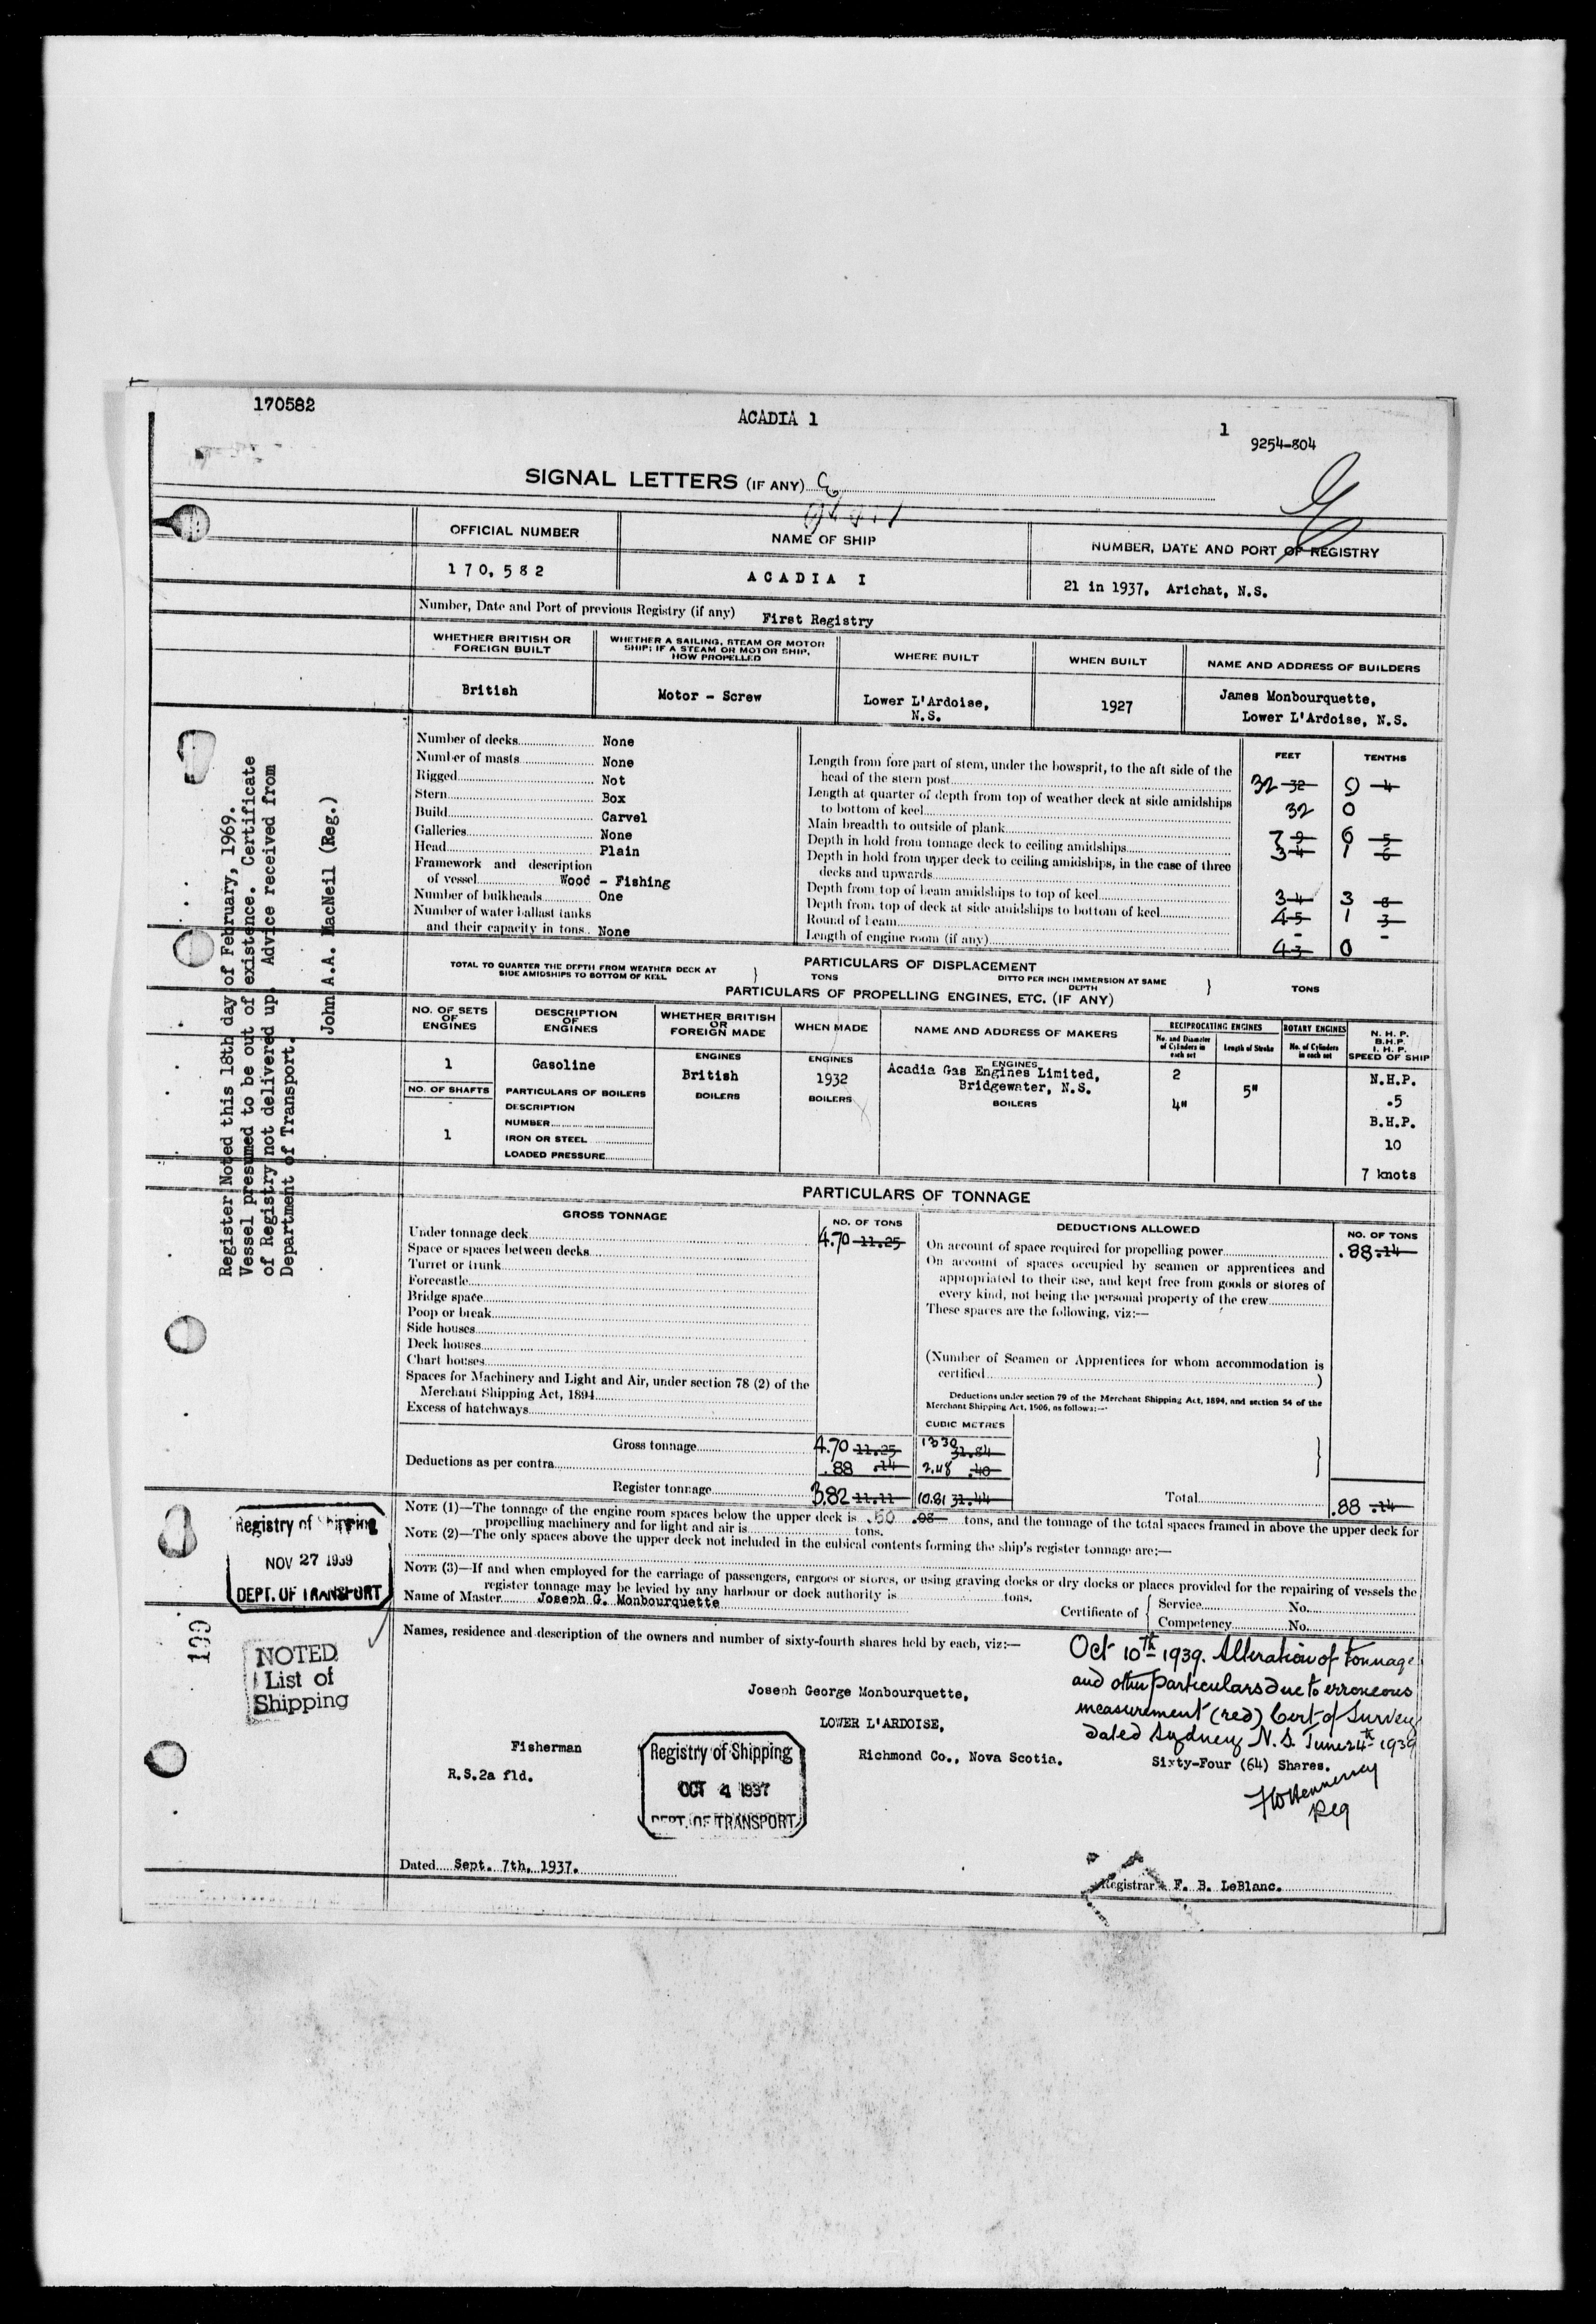 170582
ACADIA 1
1
9254-804
SIGNAL LETTERS (IF ANY)
OFFICIAL NUMBER
NAME OF SHIP
NUMBER, DATE AND PORT OF REGISTRY
170,582
ACADIA I
21 in 1937, Arichat, N.S.
Number, Date and Port of previous Registry (if any) First Registry
WHETHER BRITISH OR FOREIGN BUILT
WHETHER A SAILING, STEAM OR MOTOR SHIP; IF A STEAM OR MOTOR SHIP, HOW PROPELLED
WHERE BUILT
WHEN BUILT
NAME AND ADDRESS OF BUILDERS
British
Motor - Screw
Lower L'Ardoise, N.S.
1927
James Monbourquette,
Lower L'Ardoise, N.S.
Number of decks None
Number of masts None
Rigged Not
Stern Box
Build Carvel
Galleries None
Head Plain
Framework and description
of vessel Wood - Fishing
Number of bulkheads One
Number of water ballast tanks
and their capacity in tons None
FEET TENTHS
Length from fore part of stem, under the bowsprit, to the aft side of the
head of the stern post 32 32 9 4
Length at quarter of depth from top of weather deck at side amidships
to bottom of keel 32 0
Main breadth to outside of plank 7 9 6 5
Depth in hold from tonnage deck to ceiling amidships 3 4 1 6
Depth in hold from upper deck to ceiling amidships, in the case of three
decks and upwards
Depth from top of beam amidships to top of keel 3 4 3 8
Depth from top of deck at side amidships to bottom of keel 4 5 1 3
Round of beam - -
Length of engine room (if any) 4 3 0
PARTICULARS OF DISPLACEMENT
TOTAL TO QUARTER THE DEPTH FROM WEATHER DECK AT SIDE AMIDSHIPS TO BOTTOM OF KEEL
TONS
DITTO PER INCH IMMERSION AT SAME DEPTH
TONS
PARTICULARS OF PROPELLING ENGINES, ETC. (IF ANY)
NO. OF SETS OF ENGINES
DESCRIPTION OF ENGINES
WHETHER BRITISH OR FOREIGN MADE
WHEN MADE
NAME AND ADDRESS OF MAKERS
RECIPROCATING ENGINES
ROTARY ENGINES
No. and Diameter of Cylinders in each set
Length of Stroke
No. of Cylinders in each set
N. H. P.
B.H.P.
I. H. P.
SPEED OF SHIP
1
Gasoline
ENGINES
British
ENGINES
1932
ENGINES
Acadia Gas Engines Limited,
Bridgewater, N.S.
2
4"
5"
N.H.P.
.5
B.H.P.
10
7 knots
NO. OF SHAFTS
1
PARTICULARS OF BOILERS
DESCRIPTION
NUMBER
IRON OR STEEL
LOADED PRESSURE
BOILERS
BOILERS
BOILERS
PARTICULARS OF TONNAGE
GROSS TONNAGE
NO. OF TONS
Under tonnage deck 4.70 11.25
Space or spaces between decks
Turret or trunk
Forecastle
Bridge space
Poop or break
Side houses
Deck houses
Chart houses
Spaces for Machinery and Light and Air, under section 78 (2) of the
Merchant Shipping Act, 1894
Excess of hatchways
Gross tonnage 4.70 11.25
Deductions as per contra .88 .14
Register tonnage 3.82 11.11
CUBIC METRES
13 30 31.84
2.48 .40
10.81 31.44
DEDUCTIONS ALLOWED
NO. OF TONS
On account of space required for propelling power .88 .14
On account of spaces occupied by seamen or apprentices and
appropriated to their use, and kept free from goods or stores of
every kind, not being the personal property of the crew
These spaces are the following, viz:—
(Number of Seamen or Apprentices for whom accommodation is
certified )
Deductions under section 79 of the Merchant Shipping Act, 1894, and section 54 of the
Merchant Shipping Act, 1906, as follows:—
Total .88 .14
NOTE (1)—The tonnage of the engine room spaces below the upper deck is .50 .08 tons, and the tonnage of the total spaces framed in above the upper deck for
propelling machinery and for light and air is tons.
NOTE (2)—The only spaces above the upper deck not included in the cubical contents forming the ship's register tonnage are:—
NOTE (3)—If and when employed for the carriage of passengers, cargoes or stores, or using graving docks or dry docks or places provided for the repairing of vessels the
register tonnage may be levied by any harbour or dock authority is tons.
Name of Master Joseph G. Monbourquette
Certificate of
Service No.
Competency No.
Names, residence and description of the owners and number of sixty-fourth shares held by each, viz:—
Oct 10th 1939. Alteration of tonnage
and other particulars due to erroneous
measurement (red) Cert of Survey
dated Sydney N.S. June 24th 1939
FW Hennessey
Reg
Joseph George Monbourquette,
LOWER L'ARDOISE,
Fisherman
Richmond Co., Nova Scotia.
Sixty-Four (64) Shares.
R.S.2a fld.
Registry of Shipping
OCT 4 1937
DEPT. OF TRANSPORT
Dated Sept. 7th, 1937.
Registrar F. B. LeBlanc.
Register Noted this 18th day of February, 1969.
Vessel presumed to be out of existence. Certificate
of Registry not delivered up. Advice received from
Department of Transport.
John A.A. MacNeil (Reg.)
Registry of Shipping
NOV 27 1939
DEPT. OF TRANSPORT
100
NOTED
List of
Shipping